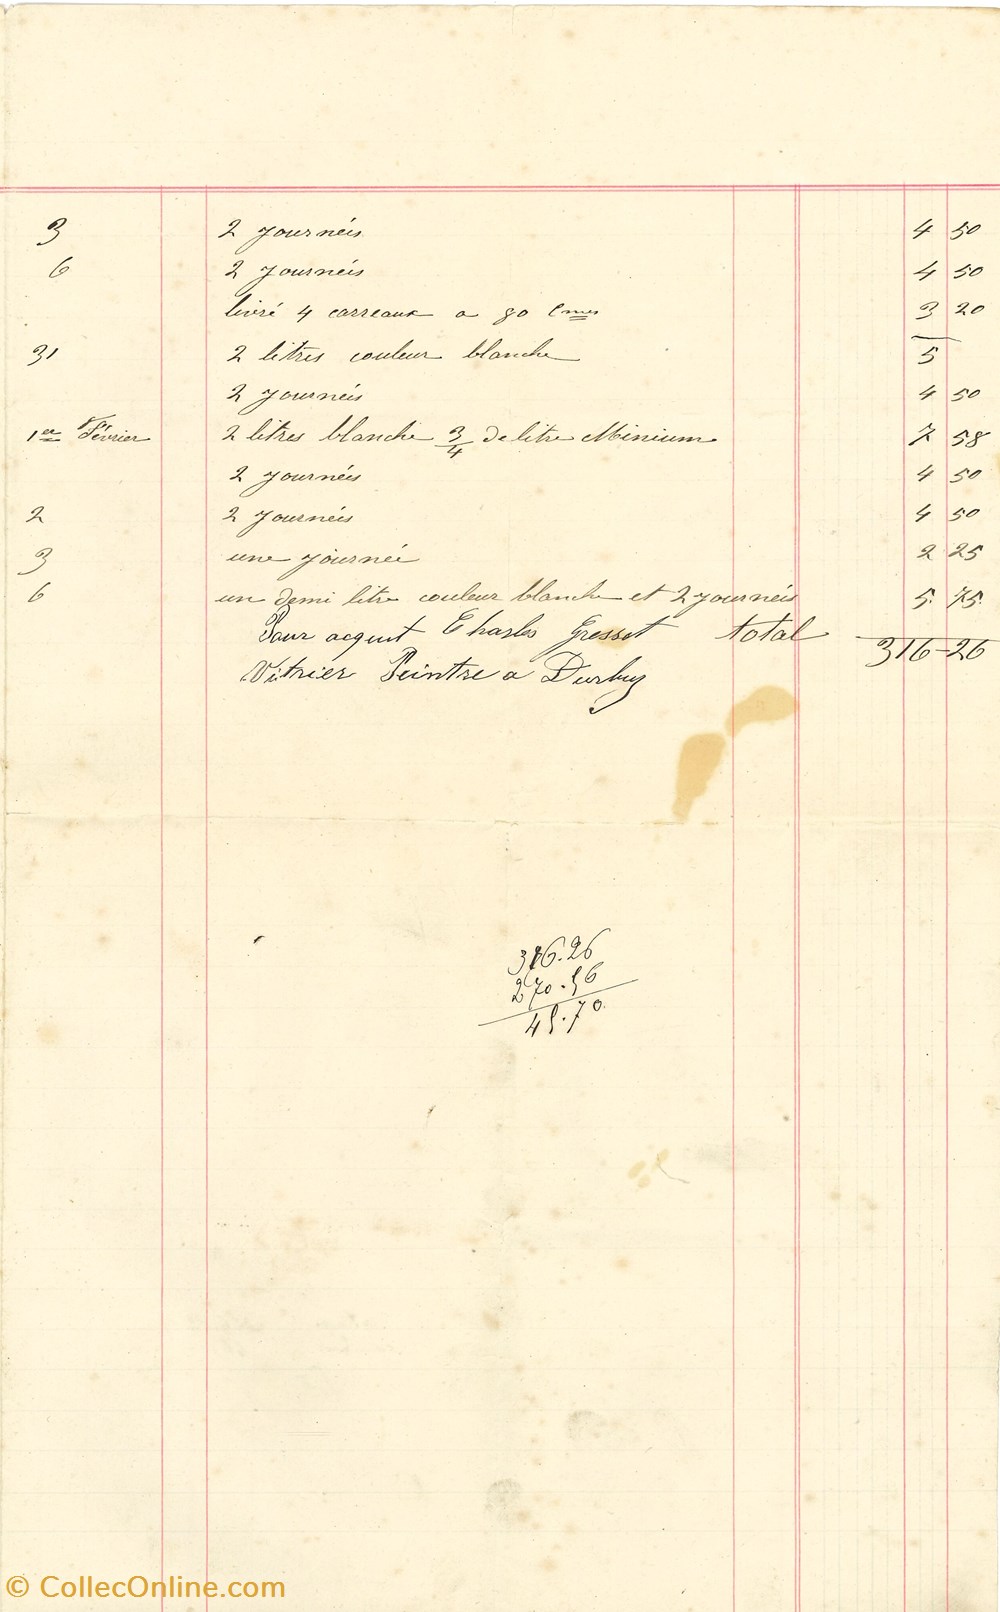 3 2 journéis 4 50
6 2 journéis 4 50
livré 4 carreaux a 80 cmes 3 20
31 2 litres couleur blanche 5
2 journéis 4 50
1er Février 2 litres blanche 3/4 de litre Minium 7 58
2 journéis 4 50
2 2 journéis 4 50
3 une journée 2 25
6 un demi litre couleur blanche et 2 journéis 5. 75.
Pour acquit Charles Gresset total 316-26
Vitrier Peintre a Durbuy
316.26
270.56
45.70.
© CollecOnline.com